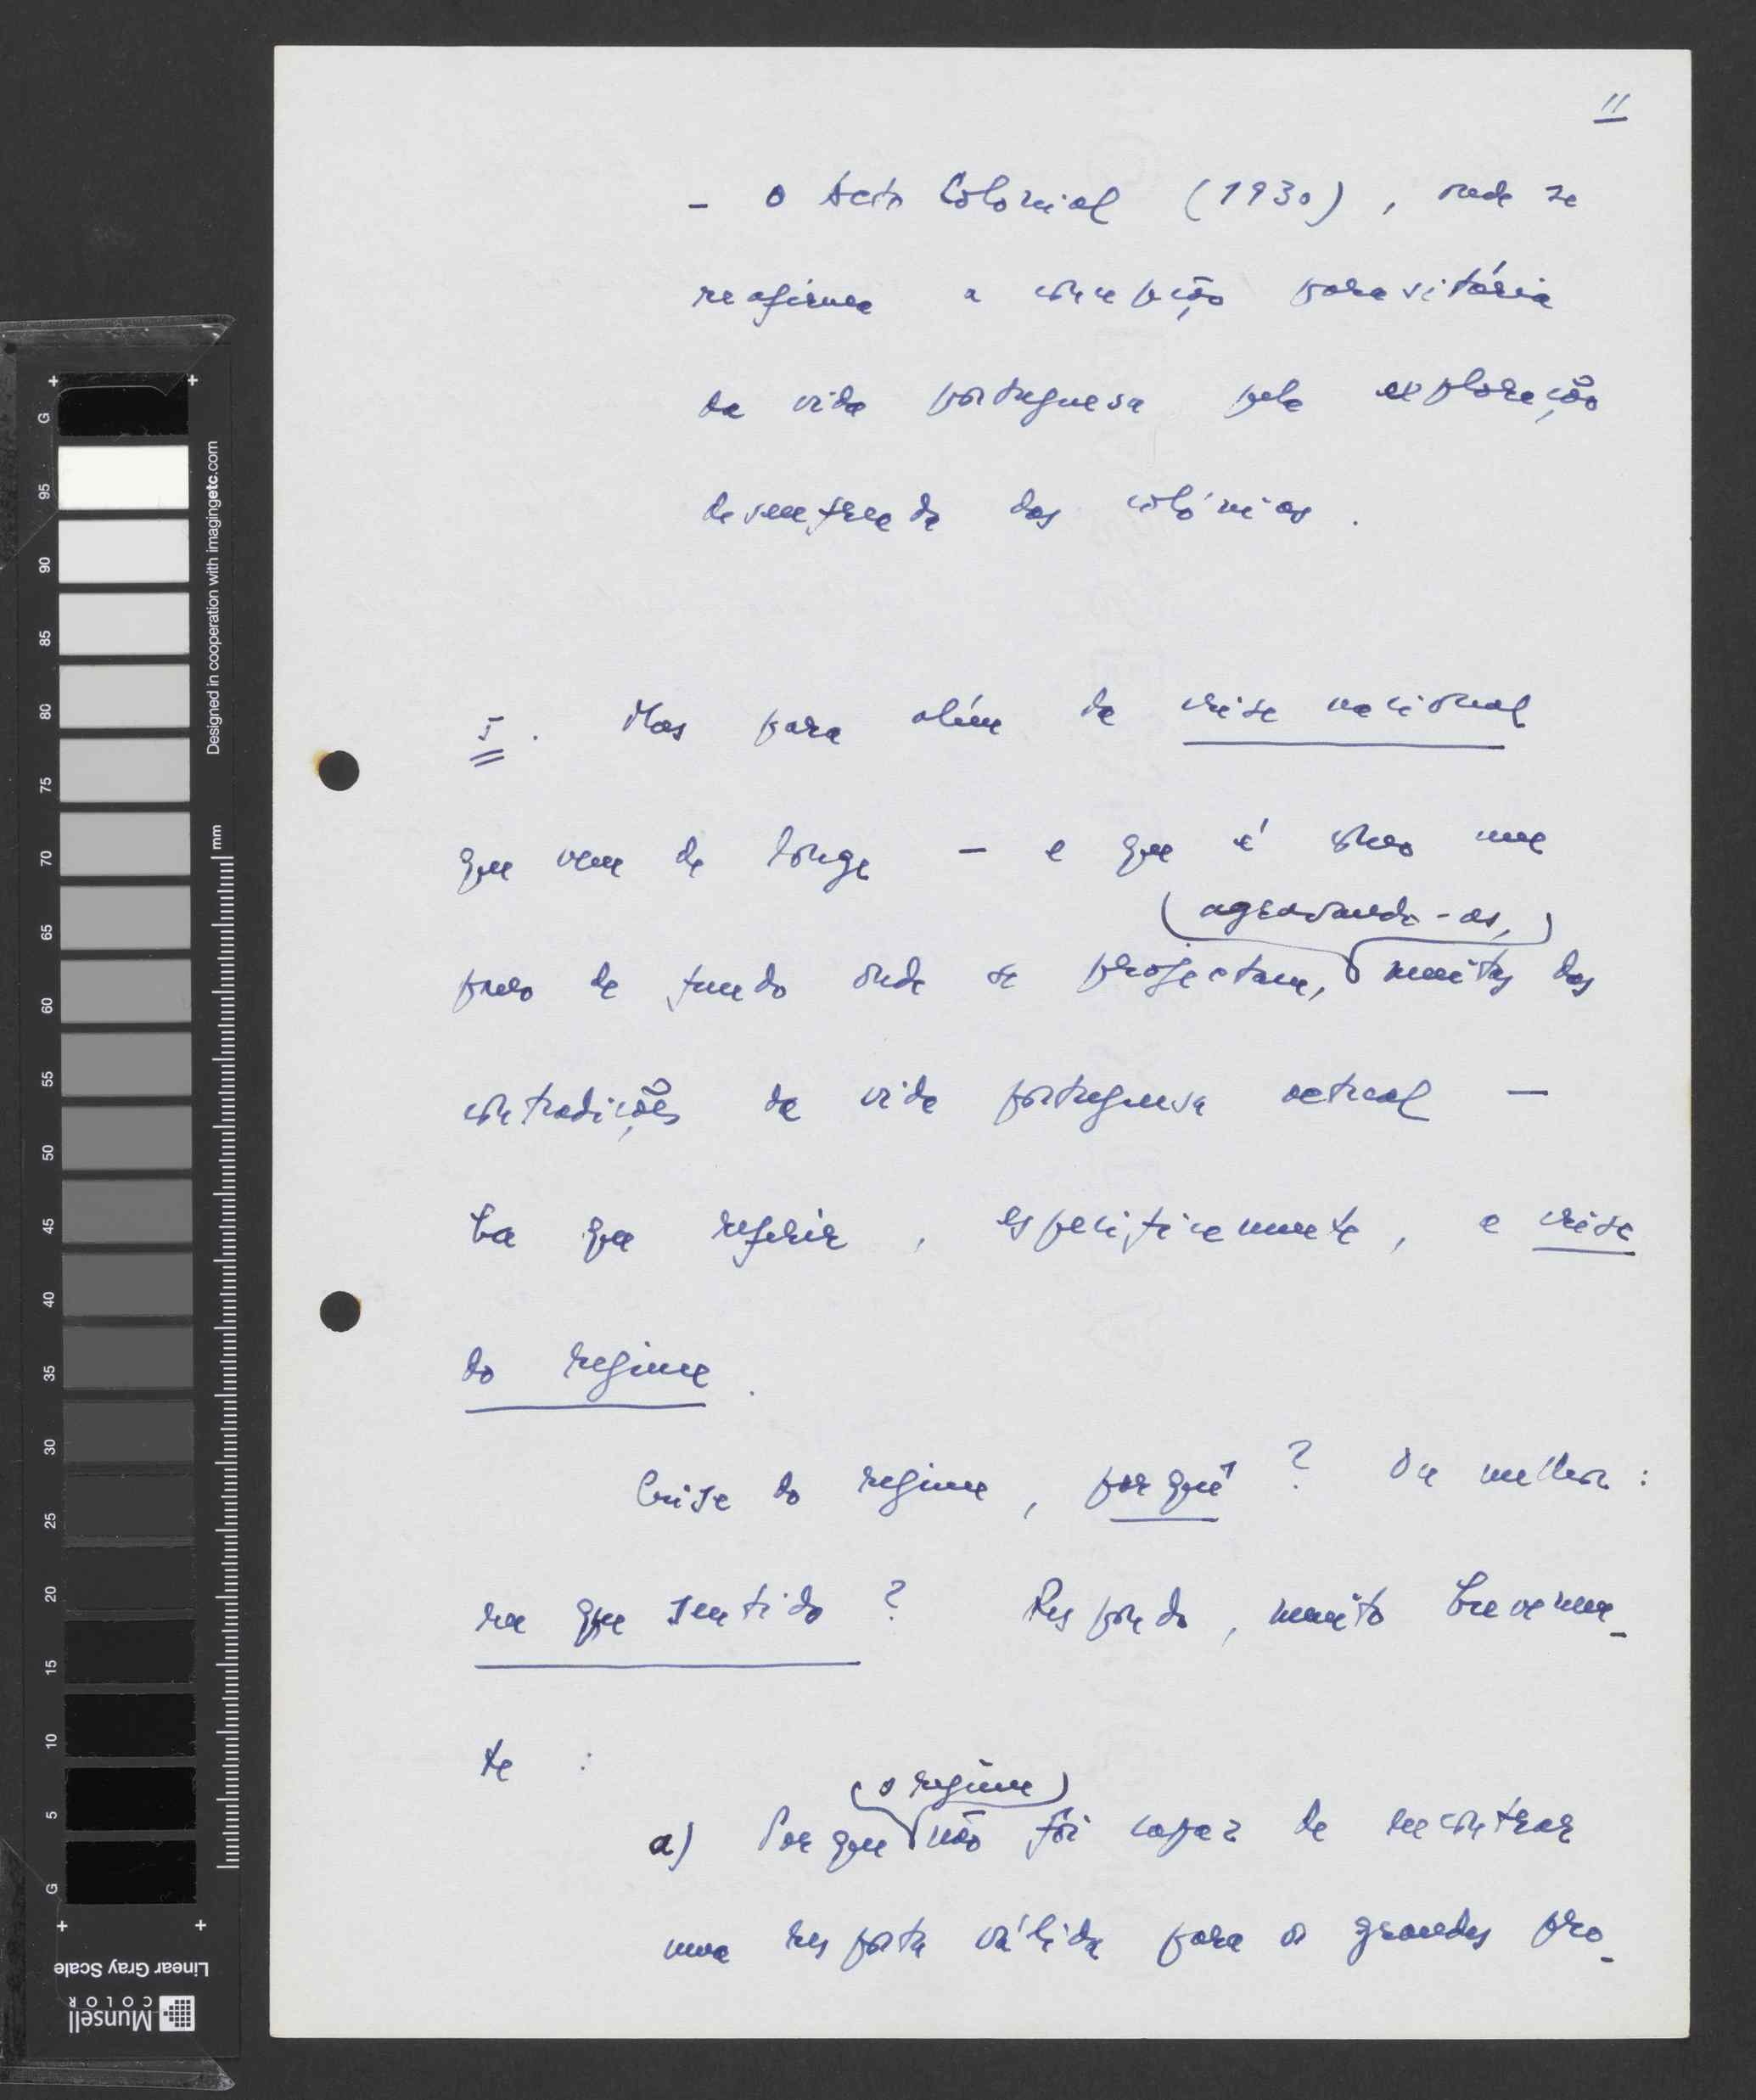 11
- o Acto Colonial (1930), onde se
reafirma a concepção parasitária
da vida portuguesa pela exploração
desenfreada das colónias.
5. Mas para além da crise nacional
que vem de longe - e que é como um
(agravando-as,)
pano de fundo onde se projectam, muitas das
contradições da vida portuguesa actual -
há que referir, especificamente, a crise
do regime.
Crise do regime, porquê? Ou melhor:
em que sentido? Respondo, muito brevemen-
te:
(o regime)
a) Porque não foi capaz de encontrar
uma resposta válida para os grandes pro-
+ +
G
95
90
85
80
75
70
65
60
55
50
45
40
35
30
25
20
15
10
5
G
+ +
Designed in cooperation with imagingetc.com
mm
Linear Gray Scale
Munsell
COLOR